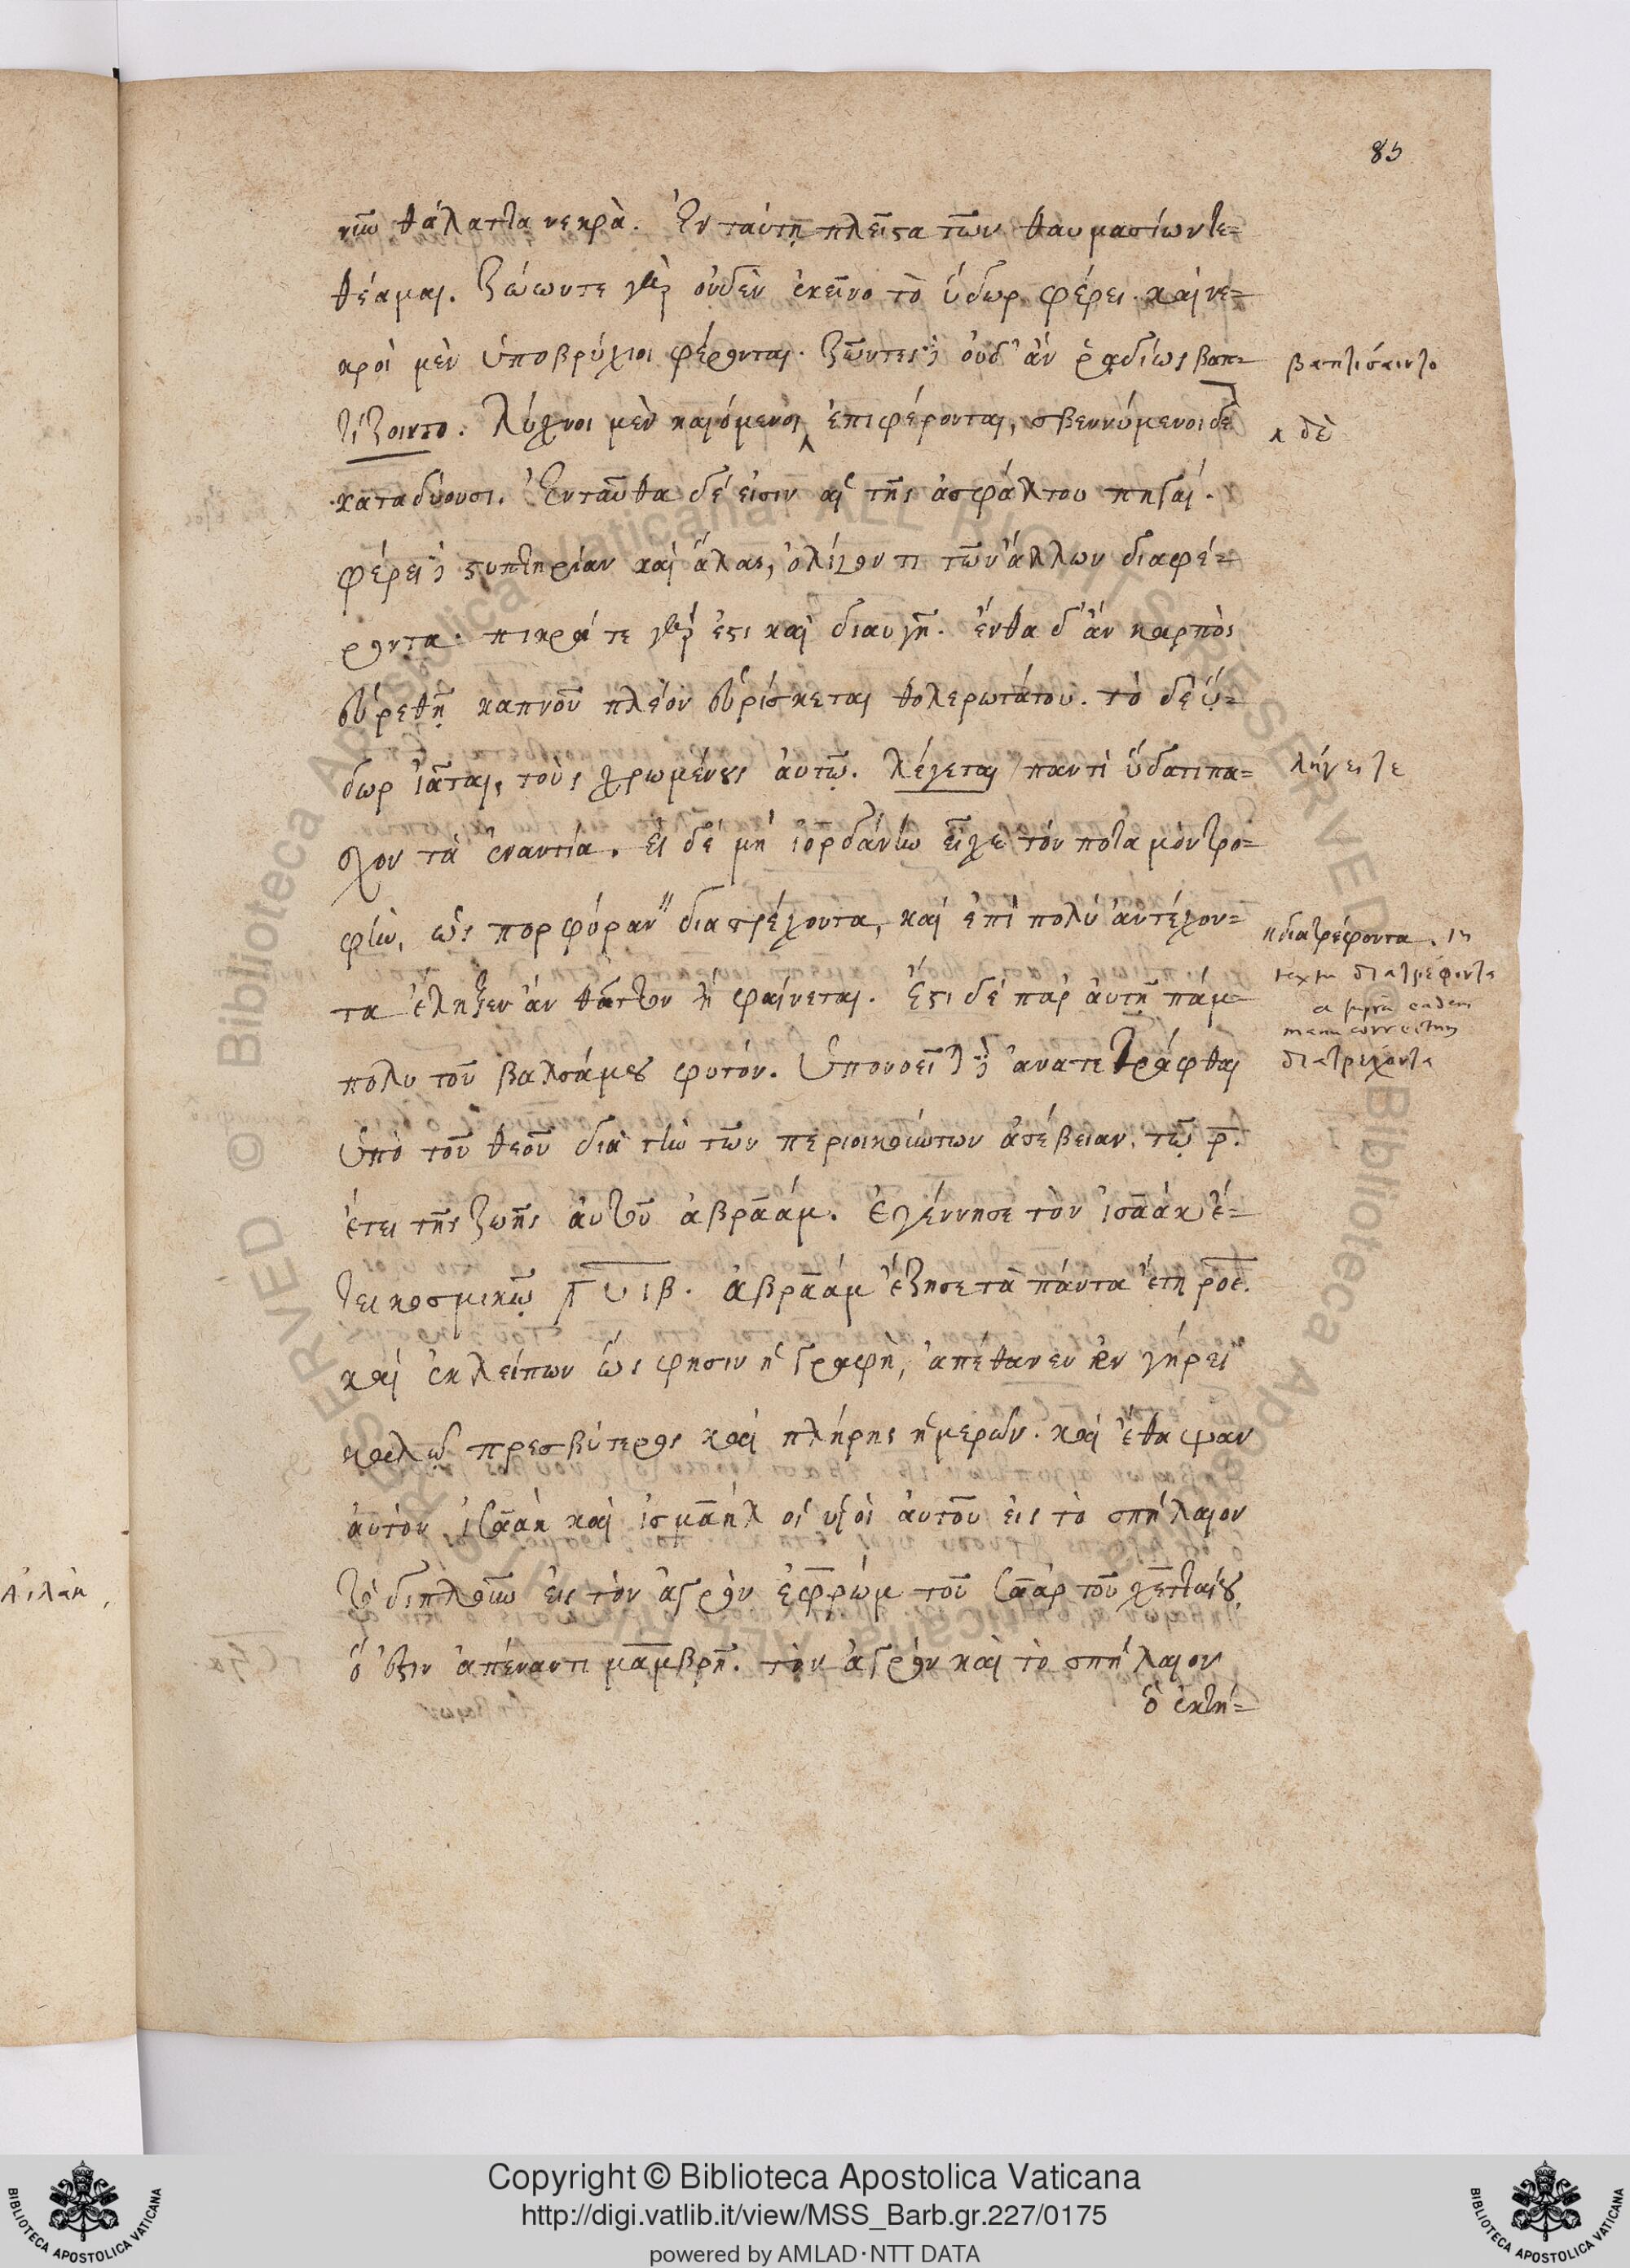 85
νὴν θάλαττα νεκρὰ. Ἐν ταύτῃ πλεῖστα τῶν θαυμασίων τε=
θέαμαι. ζώωντε γὰρ οὐδὲν ἐκεῖνο τὸ ὕδωρ φέρει. καὶ νε=
κροὶ μὲν ὑποβρύχιοι φέρονται. ζῶντες δὲ οὐδ' ἂν ῥαδίως βαπ= βαπτισαιντο
τίζοιντο. Λύχνοι μὲν καιόμενοι ἐπιφέρονται, σβεννύμενοι δὲ δὲ
καταδύουσι. Ἐνταῦθα δέ εἰσιν αἱ τῆς ἀσφάλτου πηγαί.
φέρει δὲ στυπτηρίαν καὶ ἅλας, ὀλίγον τι τῶν ἄλλων διαφέ=
ροντα· πικρά τε γάρ ἐστι καὶ διαυγῆ. ἔνθα δ' ἂν καρπὸς
εὑρεθῇ καπνοῦ πλέον εὑρίσκεται θολερωτάτου. τὸ δὲ ὕ=
δωρ ἰᾶται, τοὺς χρωμένους αὐτῷ. λέγεται παντὶ ὕδατι πα= λήγει τε
σχον τὰ ἐναντία. εἰ δὲ μὴ ἰορδάνην εἶχε τὸν ποταμὸν τρο=
φὴν, ὡς πορφύραν διατρέχοντα, καὶ ἐπὶ πολὺ ἀντέχον= διατρέφοντα. in
τα ἔληξεν ἂν θᾶττον ἢ φαίνεται. ἔστι δὲ παρ' αὐτῇ πάμ= textu διατρέφοντα
a supra eadem
manu correctum
πολυ τοῦ βαλσάμου φυτόν. Ὑπονοεῖται δὲ ἀνατετράφθαι διατρέχοντα
ὑπὸ τοῦ θεοῦ διὰ τὴν τῶν περιοικούντων ἀσέβειαν. τῷ ρ.
ἔτει τῆς ζωῆς αὐτοῦ ἀβραάμ. ἐγέννησε τὸν ἰσαὰκ ἔ=
τει κοσμικῷ γυιβ. ἀβραάμ ἔζησε τὰ πάντα ἔτη ροε.
καὶ ἐκλείπων ὥς φησιν ἡ γραφὴ, ἀπέθανεν ἐν γήρει
καλῷ πρεσβύτερος καὶ πλήρης ἡμερῶν. καὶ ἔθαψαν
αὐτὸν ἰσαὰκ καὶ ἰσμαὴλ οἱ υἱοὶ αὐτοῦ εἰς τὸ σπήλαιον
τὸ διπλοῦν εἰς τὸν ἀγρὸν ἐφρώμ τοῦ σαάρ τοῦ χετταίου,
ὅ ἐστιν ἀπέναντι μαμβρῆ. τὸν ἀγρὸν καὶ τὸ σπήλαιον
ὃ ἐκτή=
Copyright © Biblioteca Apostolica Vaticana
http://digi.vatlib.it/view/MSS_Barb.gr.227/0175
powered by AMLAD·NTT DATA